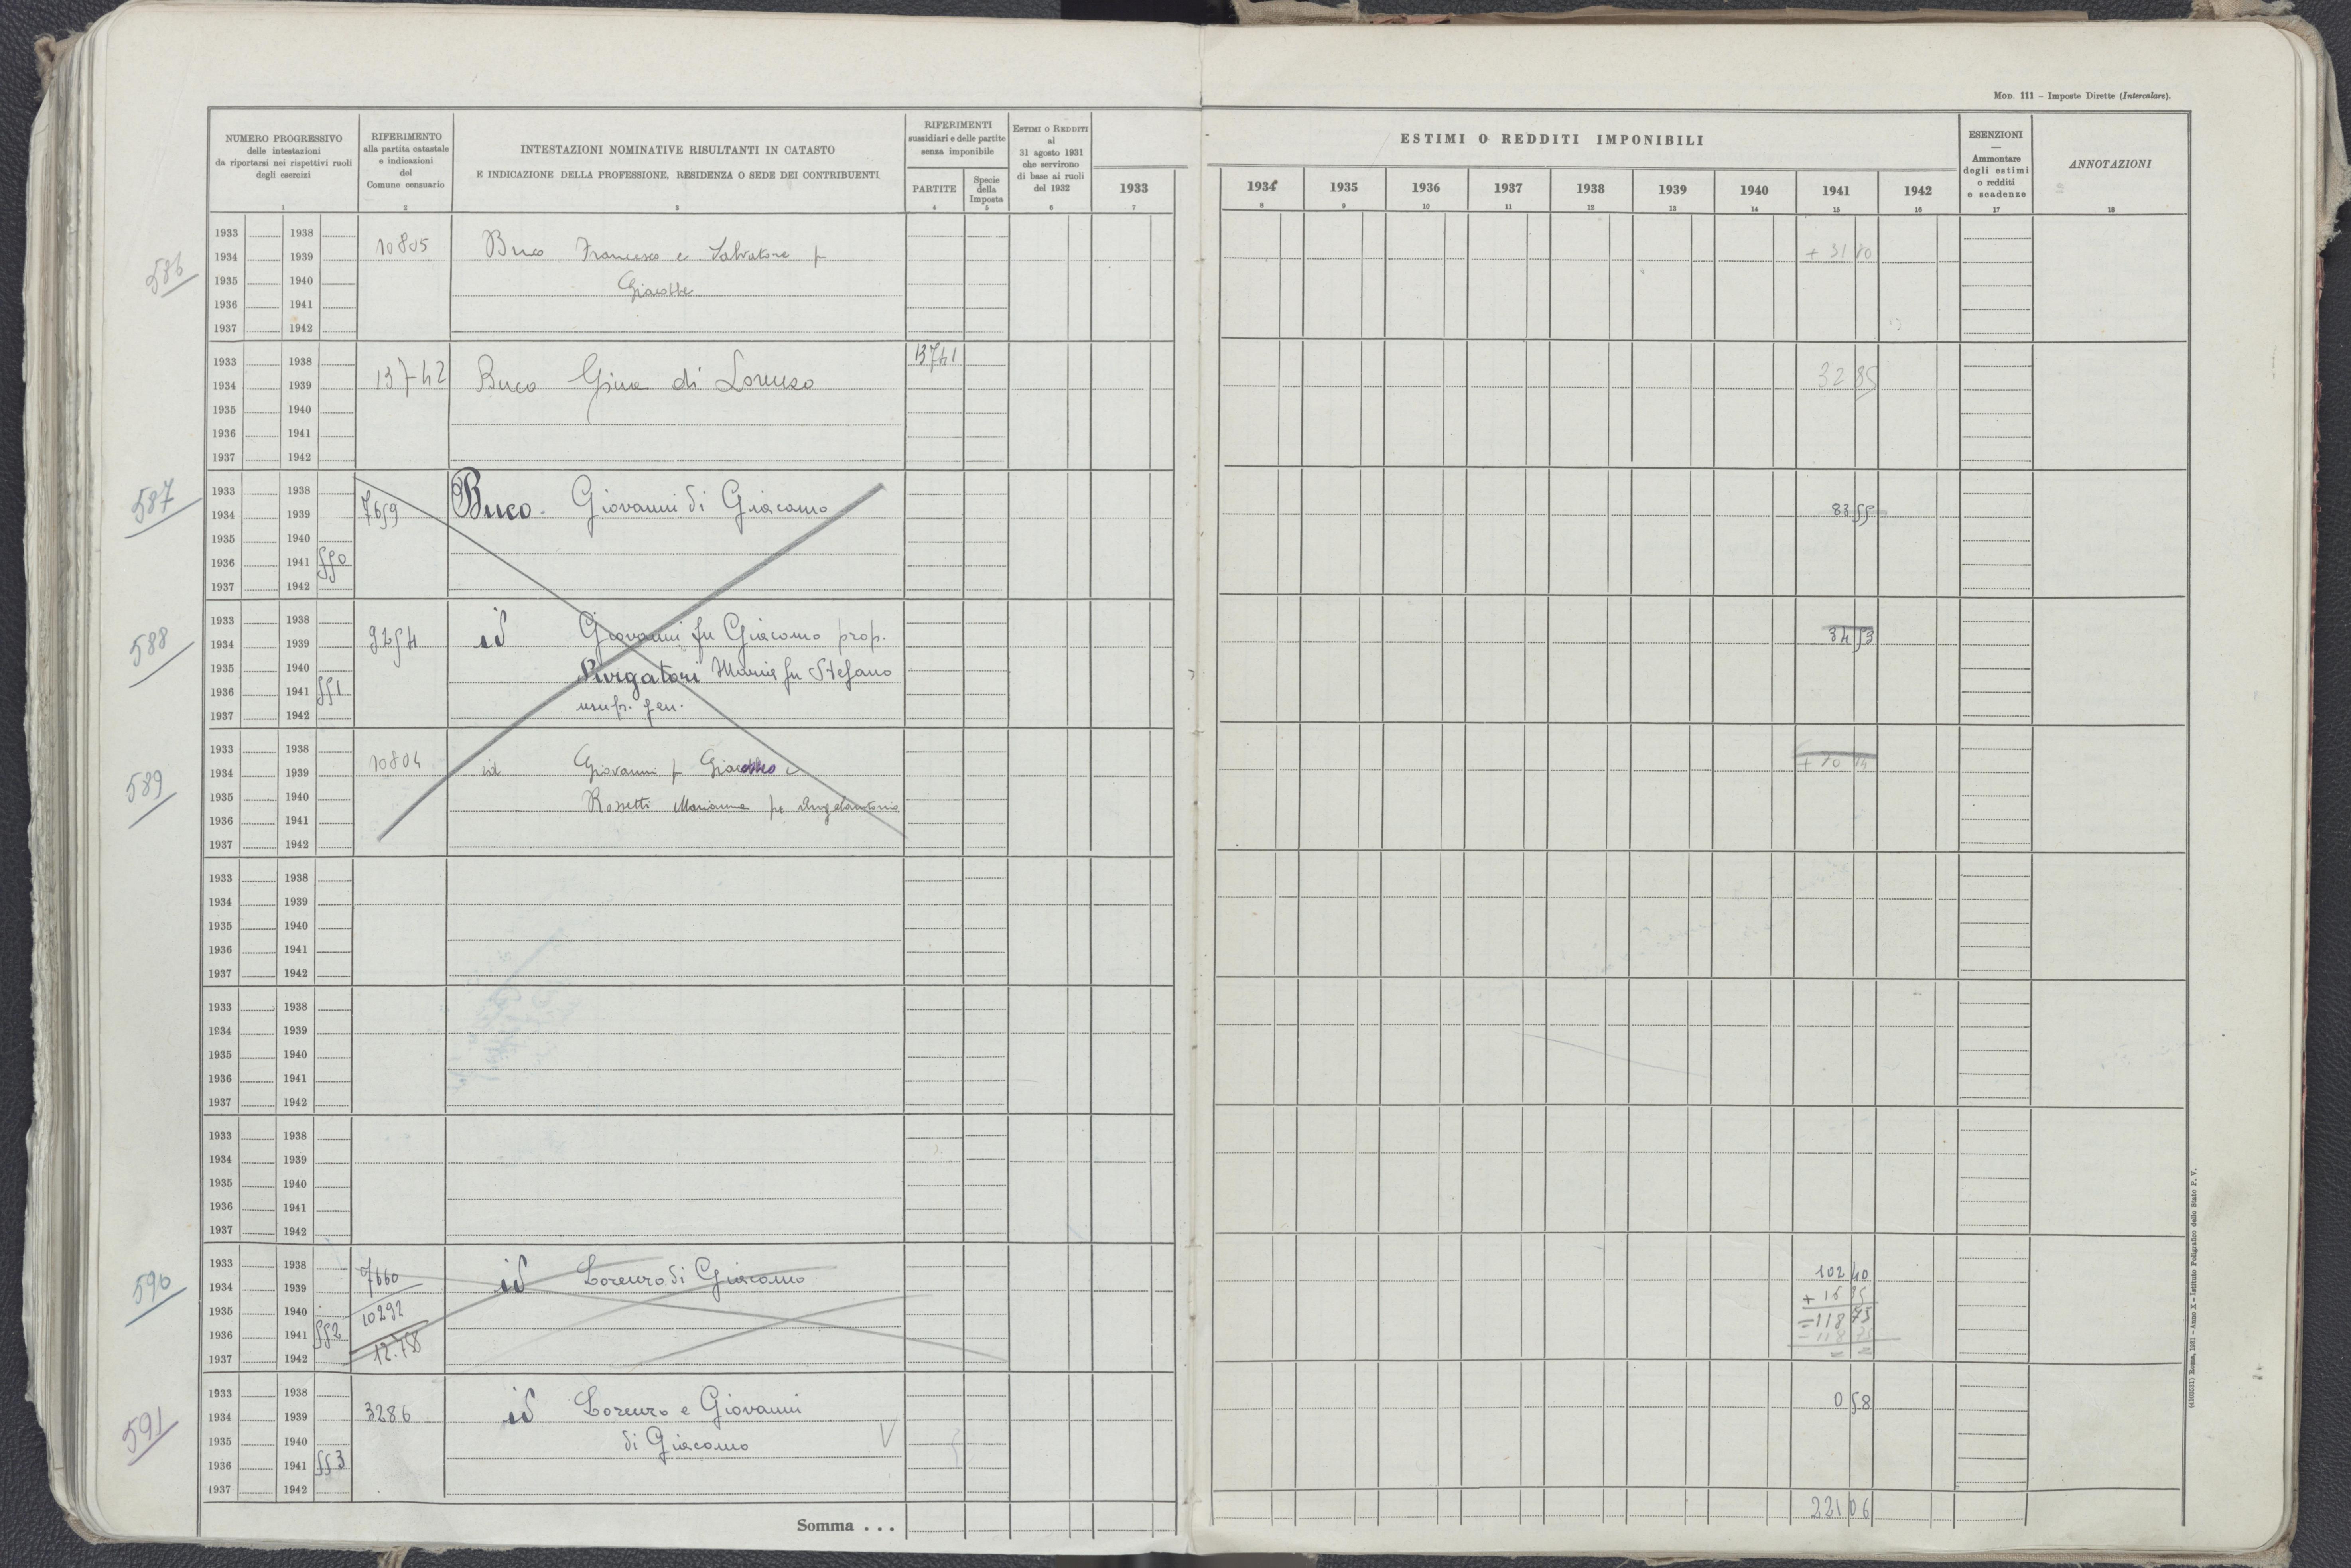 MOD. 111 – Imposte Dirette (Intercalare).
NUMERO PROGRESSIVO
delle intestazioni
da riportarsi nei rispettivi ruoli
degli esercizi
1
RIFERIMENTO
alla partita catastale
e indicazioni
del
Comune censuario
2
INTESTAZIONI NOMINATIVE RISULTANTI IN CATASTO
E INDICAZIONE DELLA PROFESSIONE, RESIDENZA O SEDE DEI CONTRIBUENTI
3
RIFERIMENTI
sussidiari e delle partite
senza imponibile
PARTITE
4
Specie
della
Imposta
5
ESTIMI O REDDITI
al
31 agosto 1931
che servirono
di base ai ruoli
del 1932
6
1933
7
ESTIMI O REDDITI IMPONIBILI
1934 1935 1936 1937 1938 1939 1940 1941 1942
8 9 10 11 12 13 14 15 16
ESENZIONI
—
Ammontare
degli estimi
o redditi
e scadenze
17
ANNOTAZIONI
18
586
1933 1938
1934 1939
1935 1940
1936 1941
1937 1942
10805
Buco Francesco e Salvatore f
+ 31
1933 1938
1934 1939
1935 1940
1936 1941
1937 1942
13742
Buco Gina di Lorenzo
13741
32 85
587
1933 1938
1934 1939
1935 1940
1936 1941 550
1937 1942
7659
Buco Giovanni di Giacomo
83 55
588
1933 1938
1934 1939
1935 1940
1936 1941 551
1937 1942
9254
id Giovanni fu Giacomo prop.
Purgatori Maria fu Stefano
usuf. gen.
34 53
589
1933 1938
1934 1939
1935 1940
1936 1941
1937 1942
10804
id Giovanni f Giacomo e
Rossetti Marianna fu Angelantonio
1933 1938
1934 1939
1935 1940
1936 1941
1937 1942
1933 1938
1934 1939
1935 1940
1936 1941
1937 1942
1933 1938
1934 1939
1935 1940
1936 1941
1937 1942
590
1933 1938
1934 1939
1935 1940
1936 1941 552
1937 1942
7660
10292
12.758
id Lorenzo di Giacomo
102 40
+ 16 35
=118 75
−118 75
= =
591
1933 1938
1934 1939
1935 1940
1936 1941 553
1937 1942
3286
id Lorenzo e Giovanni
di Giacomo V
0 58
Somma . . .
221 06
(4103031) Roma, 1931 – Anno X – Istituto Poligrafico dello Stato P. V.